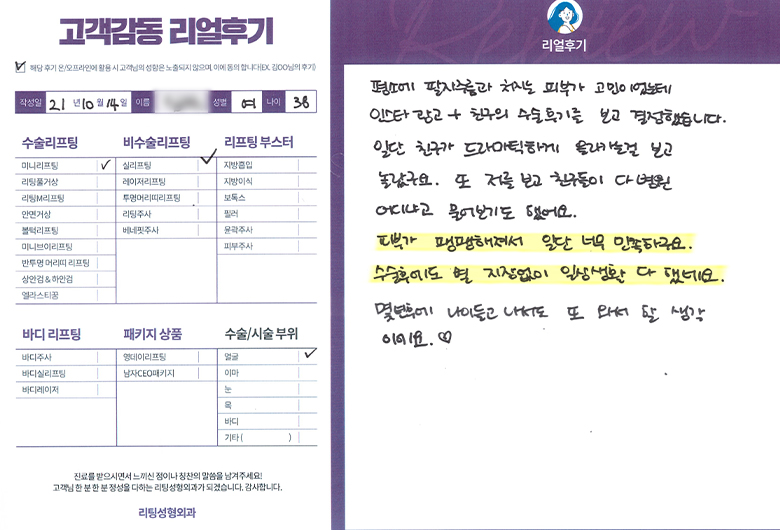 고객감동 리얼후기
해당 후기 온/오프라인에 활용 시 고객님의 성함은 노출되지 않으며, 이에 동의 합니다(EX. 김OO님의 후기)
작성일 21년 10월 14일 이름 성별 여 나이 38
수술리프팅 비수술리프팅 리프팅 부스터
미니리프팅 실리프팅 지방흡입
리팅풀거상 레이저리프팅 지방이식
리팅M리프팅 투명머리띠리프팅 보톡스
안면거상 리팅주사 필러
볼턱리프팅 베네핏주사 윤곽주사
미니브이리프팅 피부주사
반투명 머리띠 리프팅
상안검 & 하안검
엘라스티꿈
바디 리프팅 패키지 상품 수술/시술 부위
바디주사 영데이리프팅 얼굴
바디실리프팅 남자CEO패키지 이마
바디레이저 눈
목
바디
기타 ( )
진료를 받으시면서 느끼신 점이나 칭찬의 말씀을 남겨주세요!
고객님 한 분 한 분 정성을 다하는 리팅성형외과가 되겠습니다. 감사합니다.
리팅성형외과
Review
리얼후기
평소에 팔자주름과 처지는 피부가 고민이었는데
인스타 광고 + 친구의 수술후기를 보고 결정했습니다.
일단 친구가 드라마틱하게 올라가는걸 보고
놀랐구요. 또 저를 보고 친구들이 다 병원
어디냐고 물어보기도 했어요.
피부가 팽팽해져서 일단 너무 만족하구요.
수술후에도 별 지장없이 일상생활 다 했네요.
몇년후에 나이들고 나서도 또 와서 할 생각
이에요. ♡